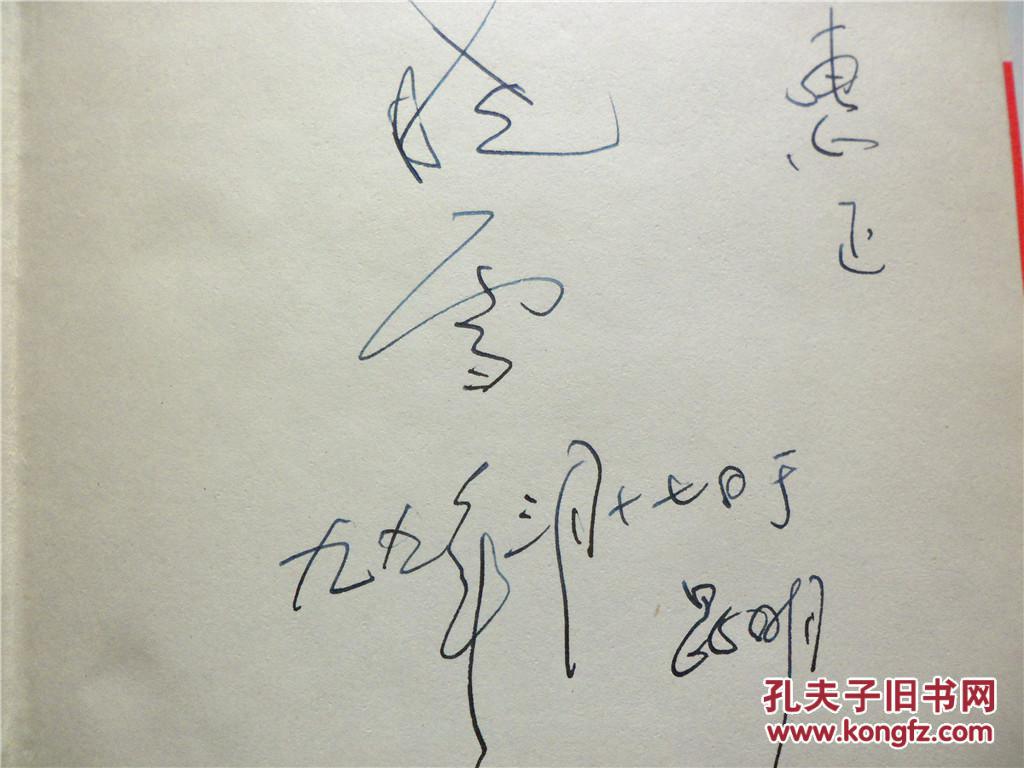 惠正
晓雪
九九年三月十七日于
昆明
孔夫子旧书网
www.kongfz.com